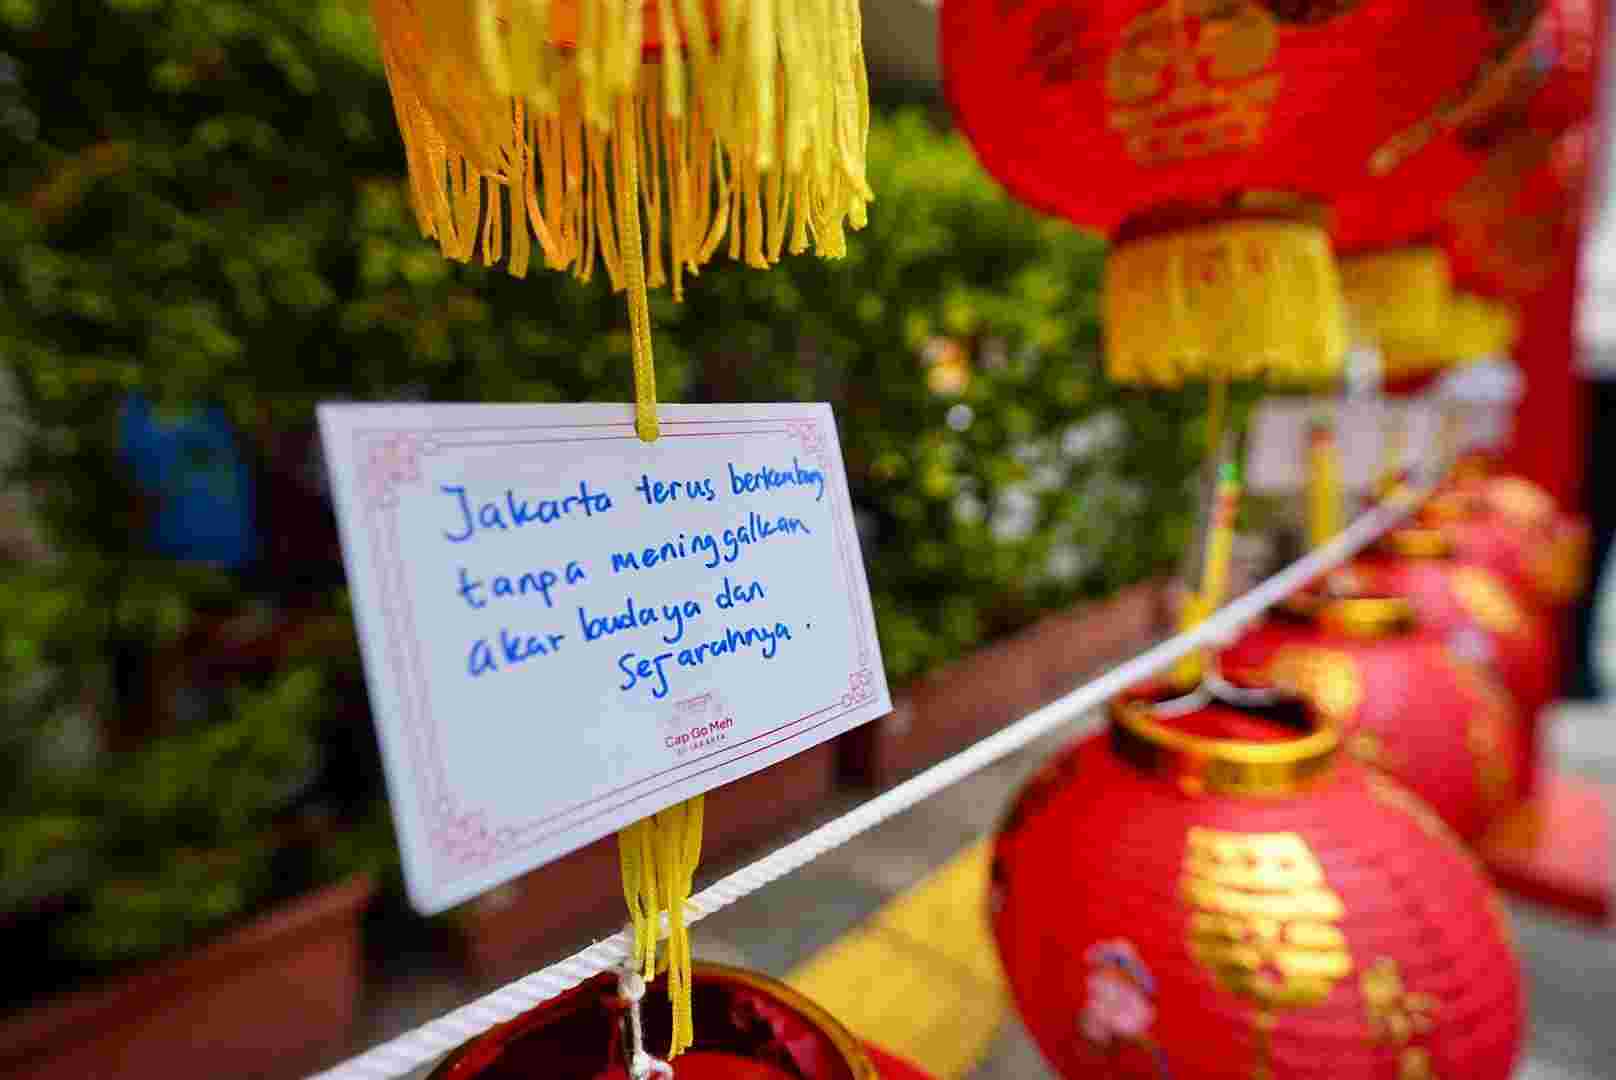 Jakarta terus berkembang
tanpa meninggalkan
akar budaya dan
sejarahnya.
Cap Go Meh
DI JAKARTA